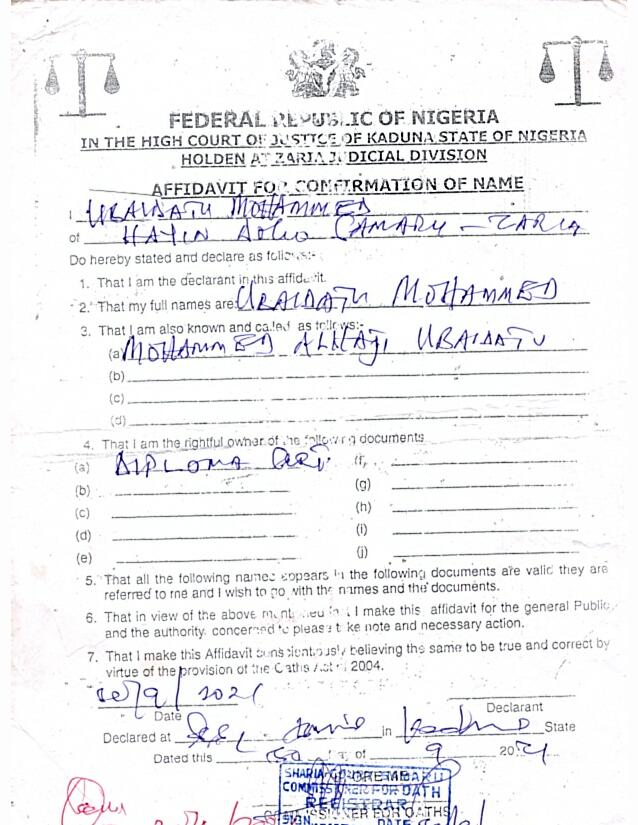 FEDERAL REPUBLIC OF NIGERIA
IN THE HIGH COURT OF JUSTICE OF KADUNA STATE OF NIGERIA
HOLDEN AT ZARIA JUDICIAL DIVISION
AFFIDAVIT FOR CONFIRMATION OF NAME
I UBAIDATU MOHAMMED
of HAYIN SAMARU - ZARIA
Do hereby stated and declare as follows:-
1. That I am the declarant in this affidavit.
2. That my full names are: UBAIDATU MOHAMMED
3. That I am also known and called as follows:-
(a) MOHAMMED ALHAJI UBAIDATU
(b)
(c)
(d)
4. That I am the rightful owner of the following documents
(a) DIPLOMA CERT. (f)
(b) (g)
(c) (h)
(d) (i)
(e) (j)
5. That all the following names appears in the following documents are valid they are
referred to me and I wish to go with the names and the documents.
6. That in view of the above mentioned fact I make this affidavit for the general Public
and the authority concerned to please take note and necessary action.
7. That I make this Affidavit consientiously believing the same to be true and correct by
virtue of the provision of the Oaths Act of 2004.
/9/2021
Date Declarant
Declared at in Kaduna State
Dated this day of 9 2021
BEFORE ME
SHARIA COURT SAMARU
COMMISSIONER FOR OATH
REGISTRAR
COMMISSIONER FOR OATHS
SIGN DATE